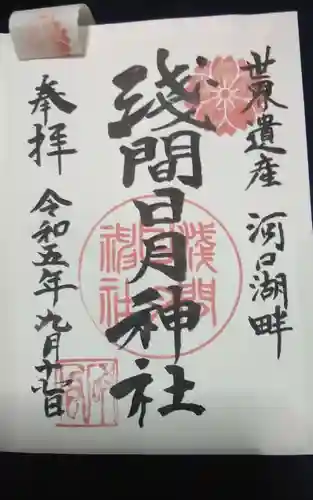 世界遺産 河口湖畔
浅間日月神社
奉拝
令和五年九月十七日